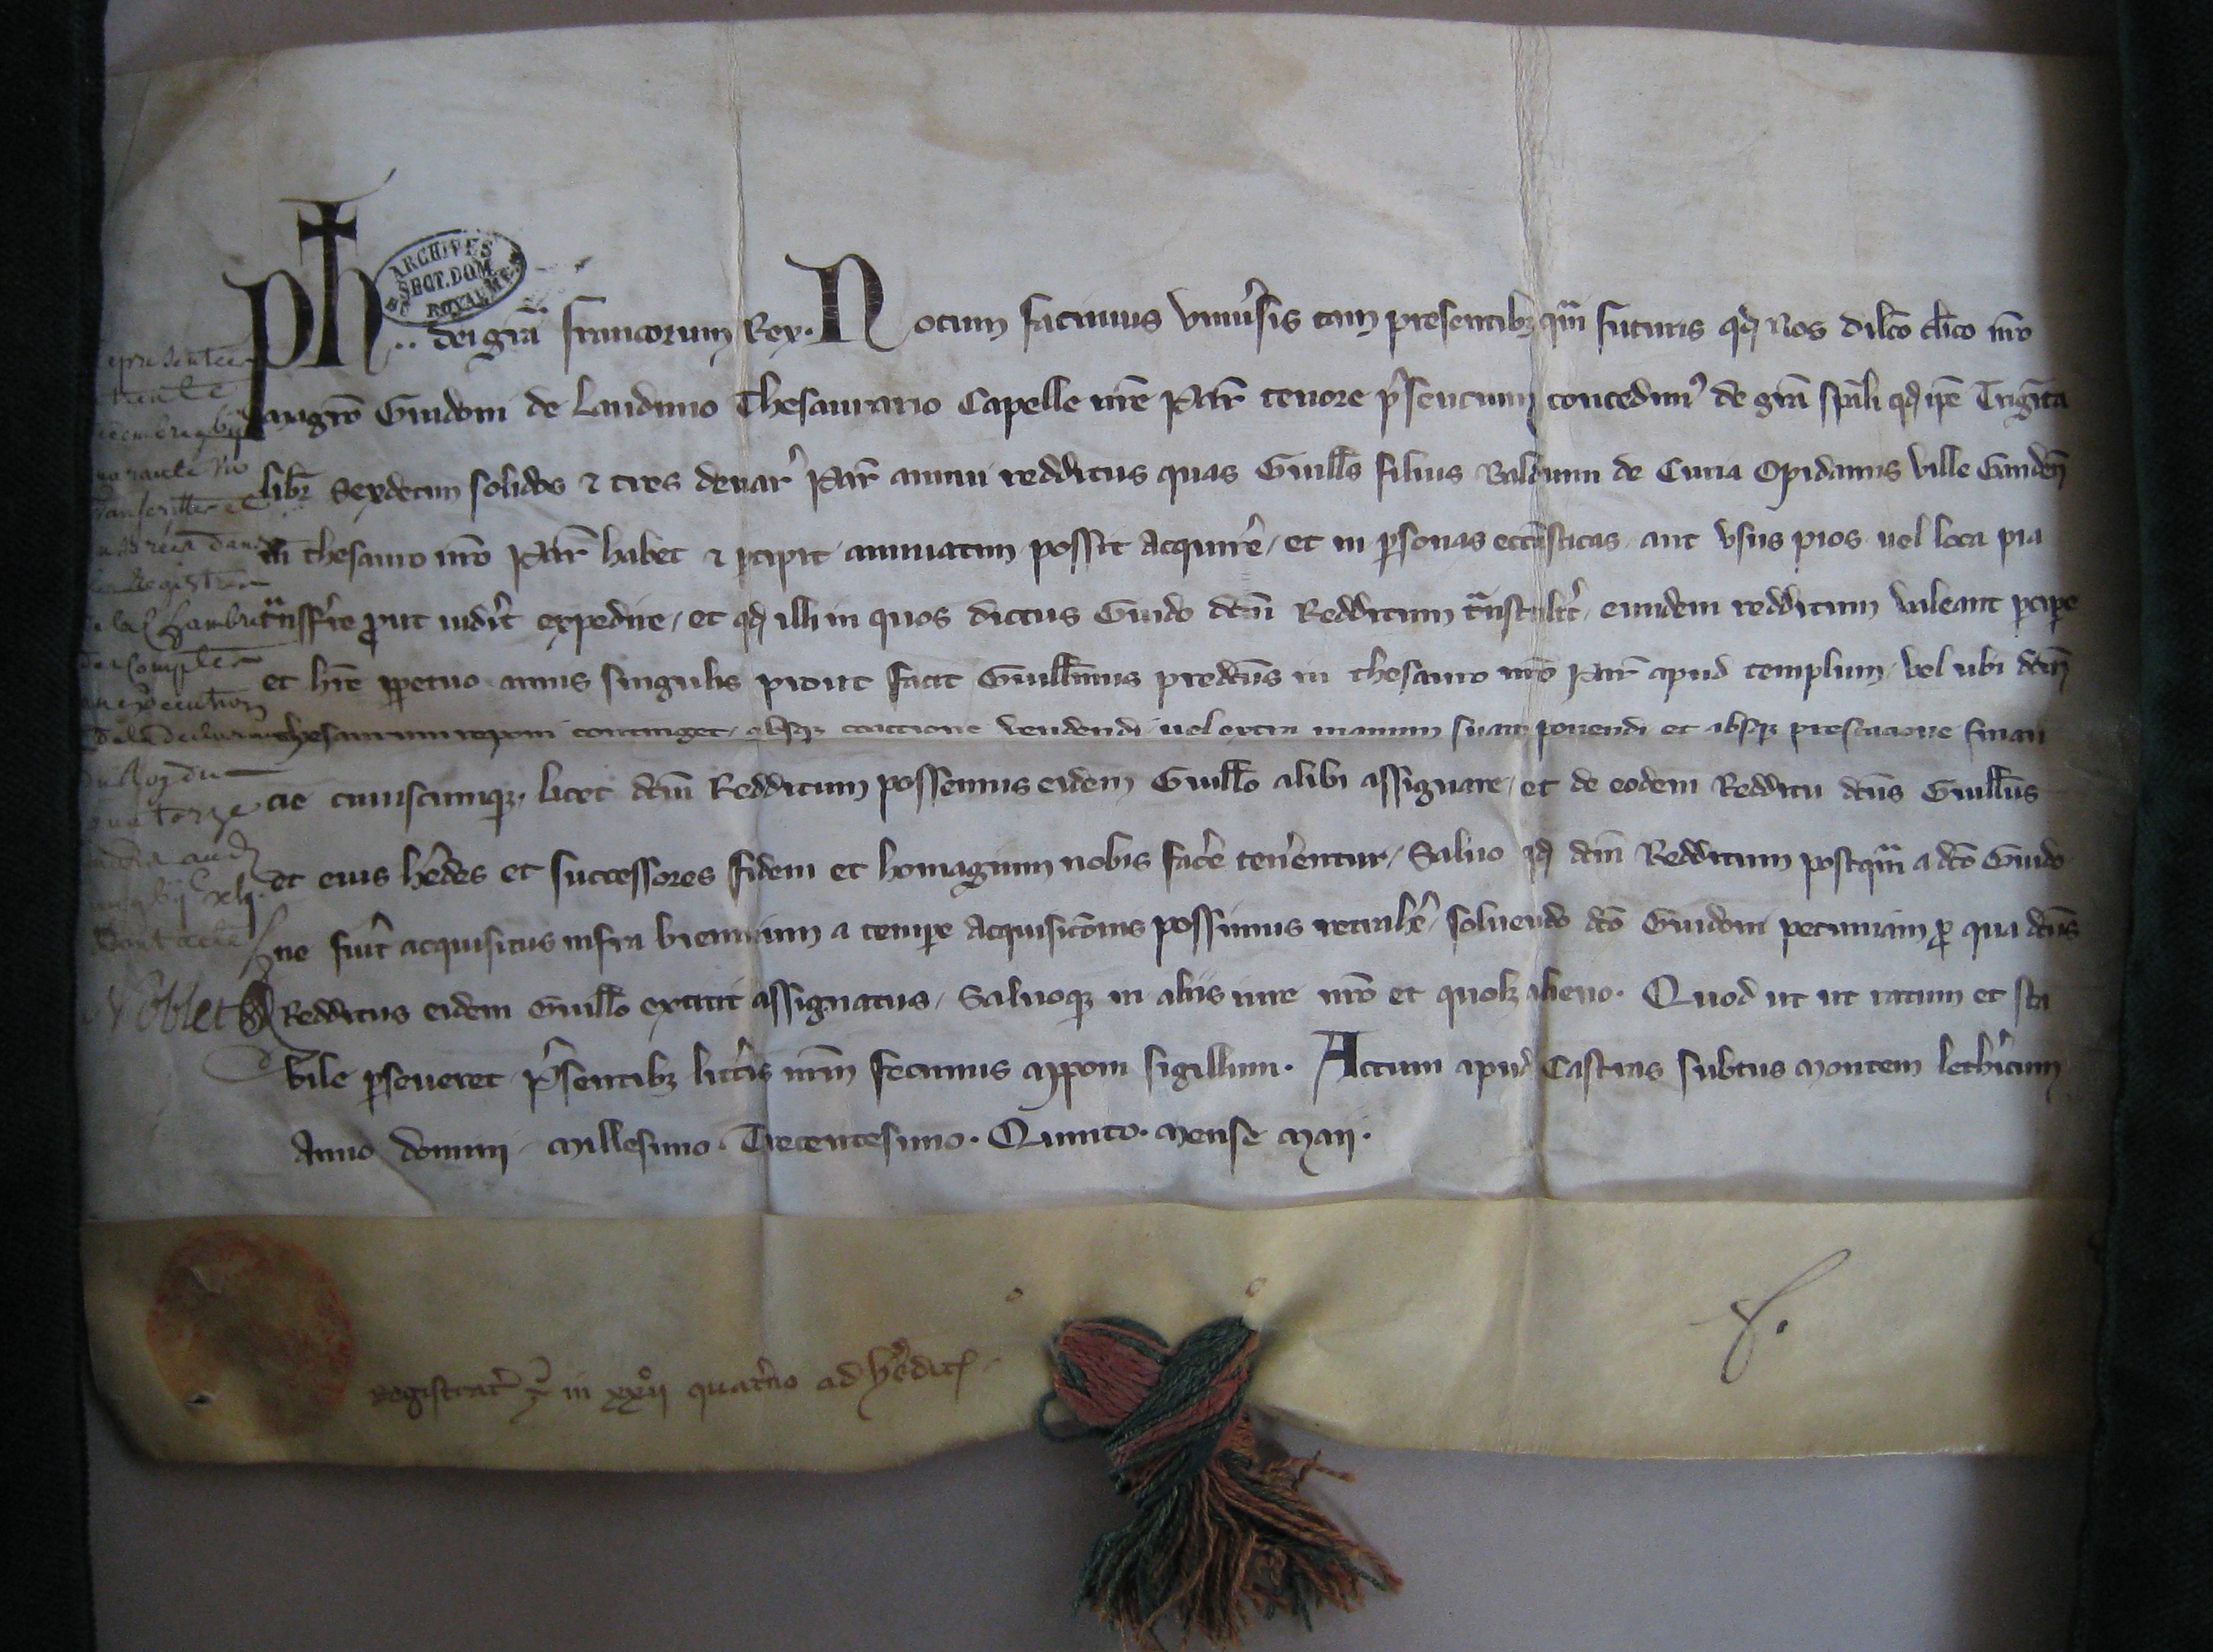 ARCHIVES
SECT. DOM.
ROYAUME
Ph .. dei gr̃a francorum Rex. Notum facimus vniu̾sis tam presentibꝫ qᷓm futuris qd̛ Nos dilc̃o clĩco nr̃o
magr̃o Guidoni de Lauduno Thesaurario Capelle nr̃e Par̃ tenore p̾sentium concedim᾽ de gr̃a sp̃ali qd̛ ip̃e Triginta
libr̃ Sexdecim solidos ⁊ tres denar̾ Par̃ annui redditus quas Guill̃s filius Balduini de Curia Opidanus ville Ganden̄
in thesauro nr̃o Par̃ habet ⁊ ꝑcipit annuatim possit acquire̾ / et in ꝑsonas eccl̃iasticas aut vsus pios uel loca pia
tᷓnsfer̾re ꝓut uider̾it expedire / et qd̛ illi in quos dictus Guido dc̃m Redditum tᷓnstuler̾it / eundem redditum valeant ꝑcipe̾
et hr̃e ꝑpetuo annis singulis prout facit Guill̃mus predc̃us in thesauro nr̃o Par̃ apud templum / vel ubi dc̃m
thesaurum reponi continget / absqꝫ coactione vendendi uel extra manum suam ponendi et absqꝫ prestacione finan
cie cuiuscumqꝫ / licet dc̃m Redditum possemus eidem Guill̃o alibi assignare / et de eodem Redditu dc̃us Guill̃us
et eius he̾des et successores fidem et homagium nobis face̾ tene̾ntur / Saluo qd̛ dc̃m Redditum postqᷓm a dc̃o Guido
ne fue̾it acquisitus infra biennium a tempore acquisic̃onis possimus retrahe̾ / soluendo dc̃o Guidoni pecuniam ꝓ qua dc̃us
Redditus eidem Guill̃o extitit assignatus / Saluoqꝫ in aliis iure nr̃o et quolꝫ alieno. Quod ut ut ratum et sta
bile ꝑseueret p̾sentibꝫ litte̾is nr̃m fecimus apponi sigillum. Actum apud Castras subtus Montem lethe̾icum
Anno domini Millesimo. Trecentesimo. Quinto. Mense Maii.
trente
Registrer
Noblet
Registrat̾ in xxii° quat̾no ad he̾dit̾